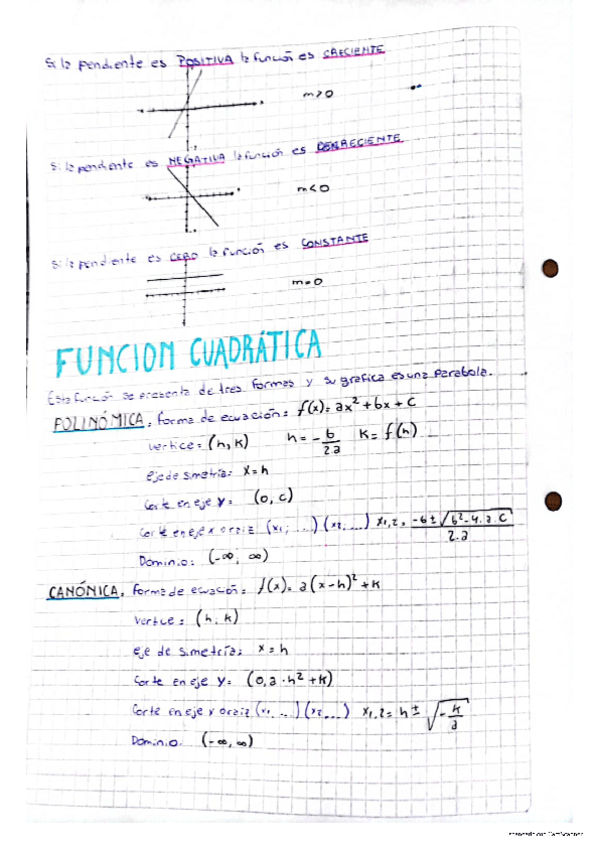 Si la pendiente es POSITIVA la función es CRECIENTE
m>0
Si la pendiente es NEGATIVA la función es DECRECIENTE
m<0
Si la pendiente es CERO la función es CONSTANTE
m=0
FUNCION CUADRÁTICA
Esta función se presenta de tres formas y su gráfica es una parabola.
POLINÓMICA: forma de ecuación: f(x)= ax²+bx+c
vertice = (h, k) h = -b/2a k = f(h)
eje de simetría: x=h
corte en eje y= (0, c)
corte en eje x o raiz (x1; ...) (x2, ...) x1,2 = -b±√b²-4.a.c/2.a
Dominio: (-∞, ∞)
CANÓNICA: forma de ecuación: f(x)= a(x-h)²+k
vertice = (h, k)
eje de simetría: x=h
corte en eje y= (0, a·h²+k)
corte en eje x o raiz (x1, ...) (x2, ...) x1,2 = h ± √-k/a
Dominio: (-∞, ∞)